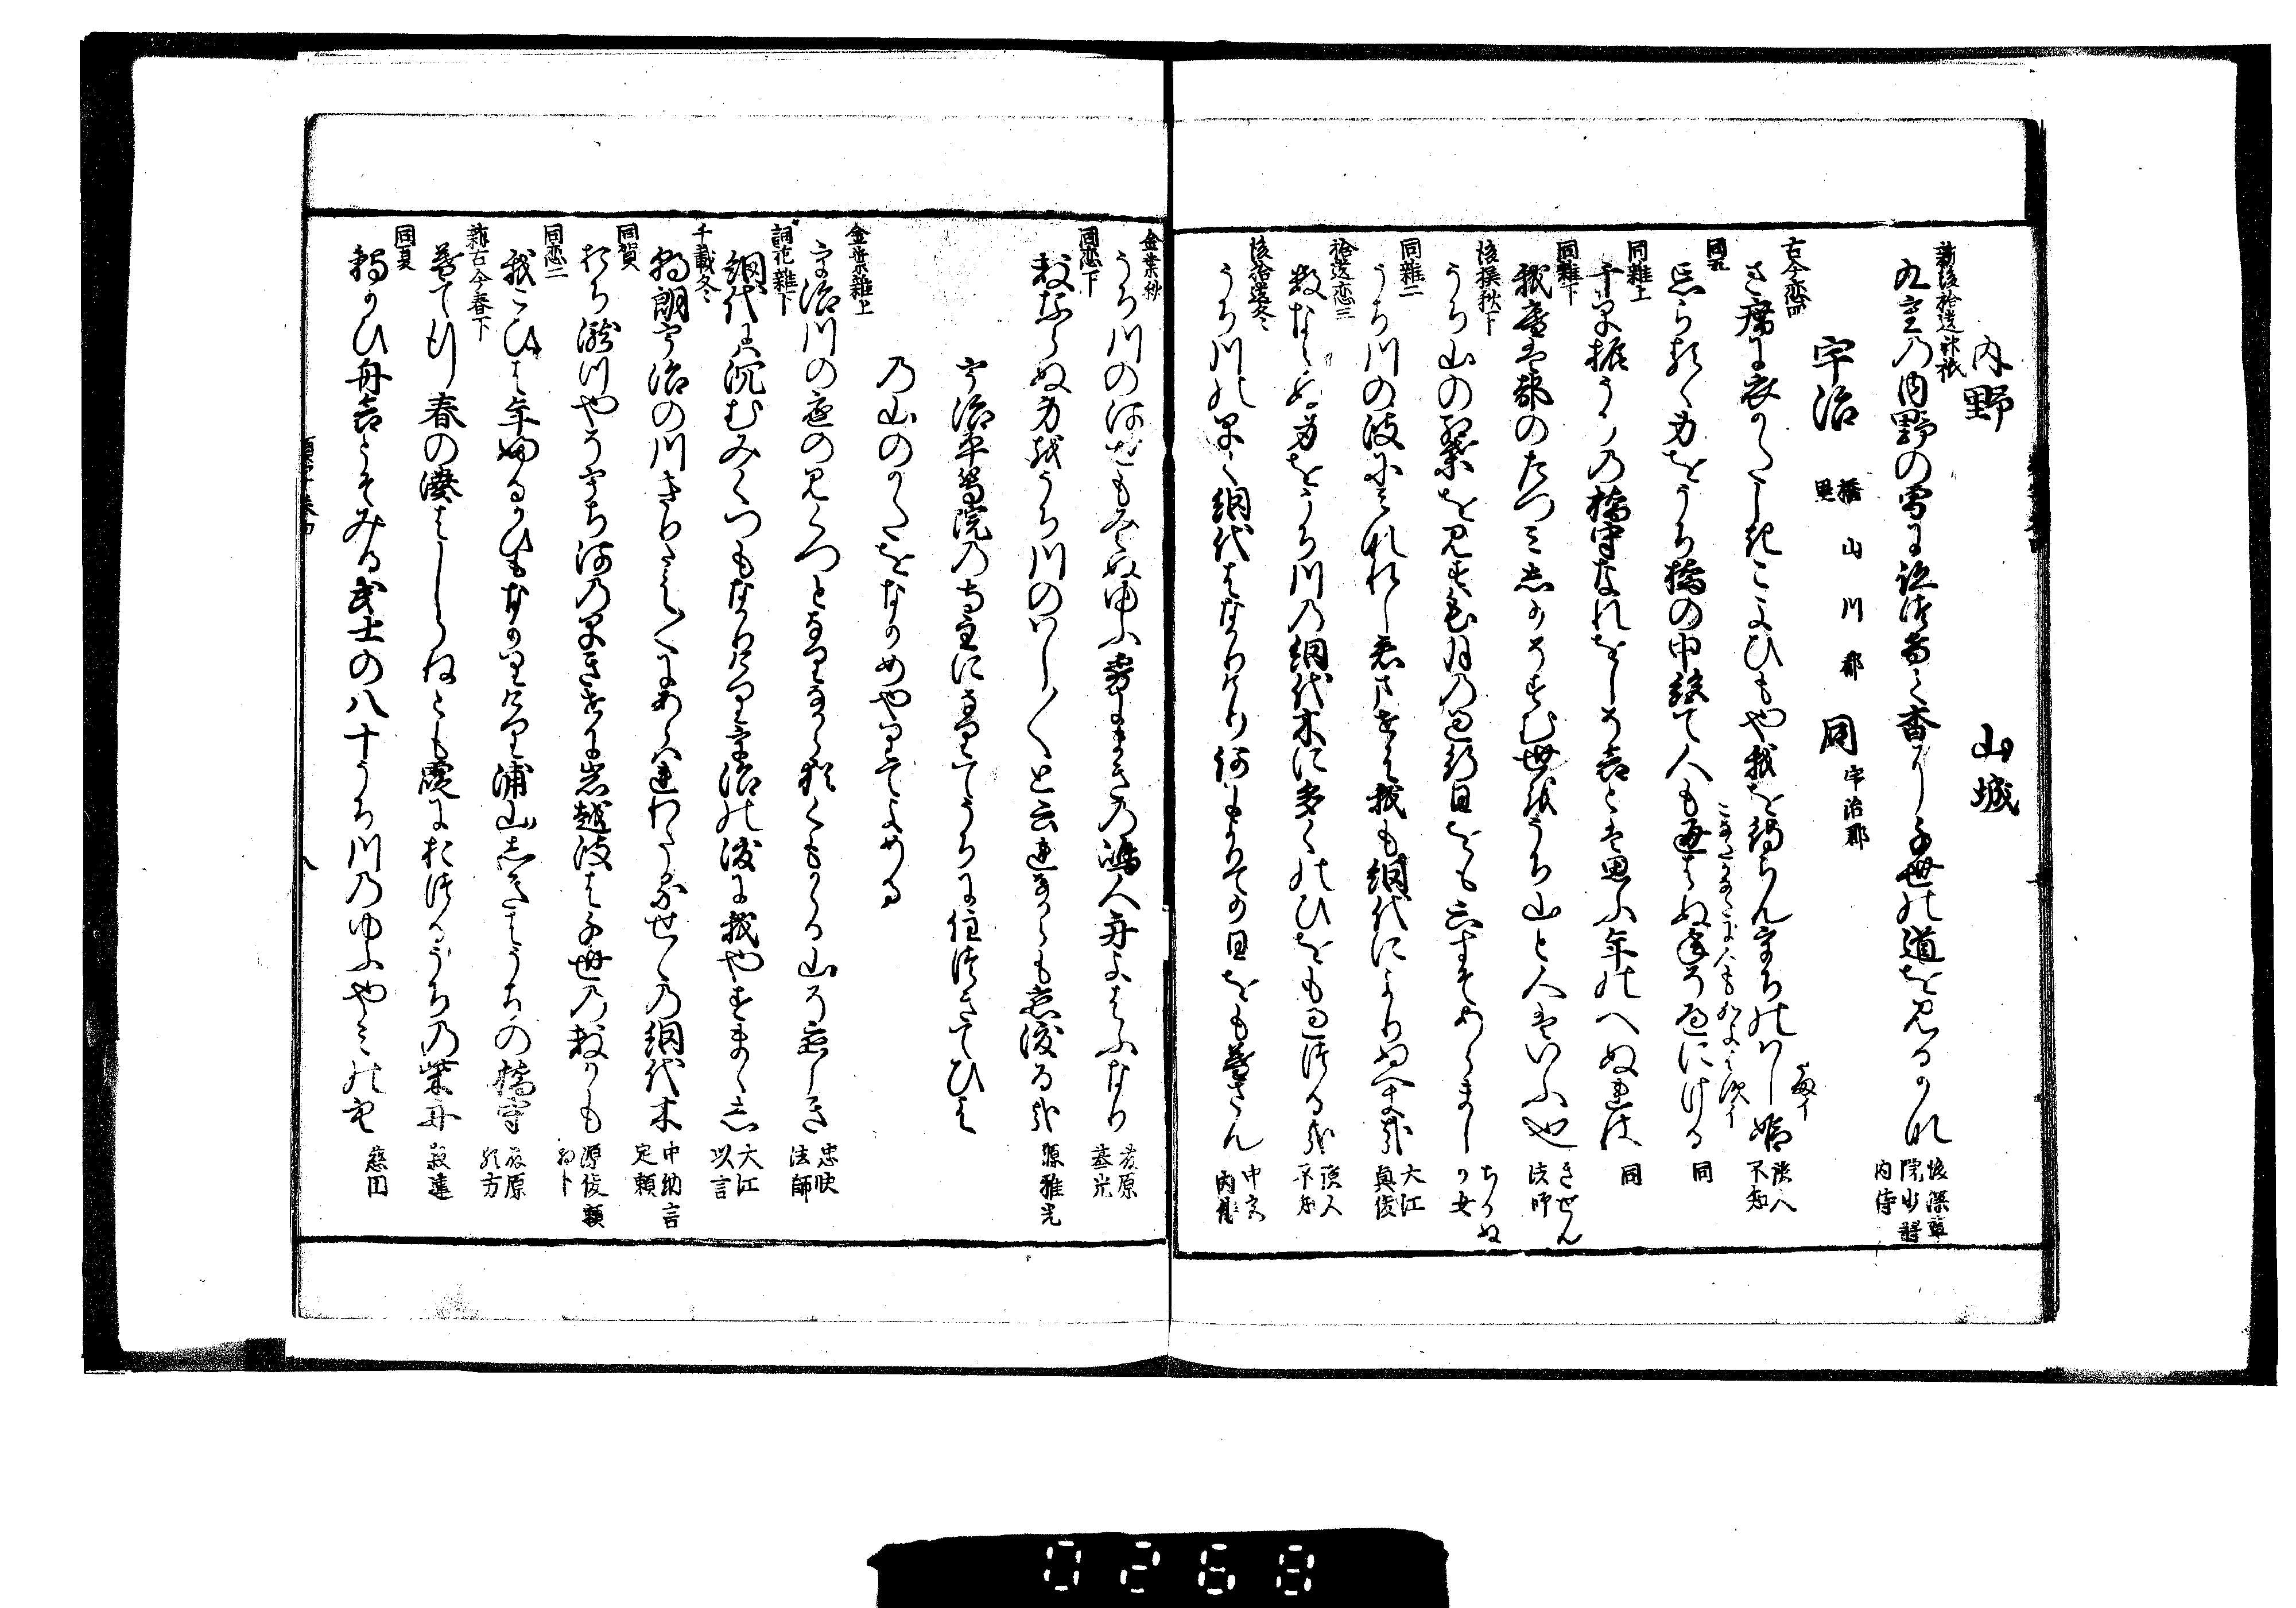 内野　山城
新後拾遺神祇
九重の内野の雪に跡つけて　世の道を見るかな　後深草院少将内侍
宇治　橋　里　山　川　都　同　宇治郡
古今恋四
さ席に衣かたしきこよひもや我を待らんうちのはし姫　読人不知
同五
忘らるゝ身をうち橋の中絶て人もかよはぬ年そへにける　同
同雑上
千早振うちの橋守なれをしそ哀とは思ふ年のへぬれは　同
同雑下
我庵は都のたつみしかそすむ世をうち山と人はいふ也　きせん法師
後撰秋下
うち山の紅葉を見すは長月の過行日をもしらすそあらまし　ちかぬか女
同雑二
うち川の波にみなれし君ませは我も網代によりぬへき哉　大江興俊
拾遺恋三
数ならぬ身をうち川の網代木に多くのひをも過しつる哉　読人不知
後拾遺冬
うち川の早く網代はなかりけり何によりてか日をも暮さん　中宮内侍
金葉秋
うち川の河せもみえぬ夕霧にまきの嶋人舟よはふなり　藤原基光
同恋下
数ならぬ身をうち川のはし〳〵と云れなからも恋渡る哉　源雅光
宇治平等院の寺主になりてうちに住つきてひえ
の山のかたをなかめやりてよめる
金葉雑上
宇治川の底のみくつとなりなから猶くもかゝる山そ恋しき　忠快法師
詞花雑下
網代には沈むみくつもなかりけり宇治の渡に我やすまゝし　大江以言
千載冬
朝朗宇治の川きりたえ〳〵にあらはれわたるせゝの網代木　中納言定頼
同賀
おち瀧川やそうち河の早きせに岩越波は千世の数かも　源俊頼
同恋二
我こひは年ふるかひもなかりけり浦山しきはうちの橋守　藤原顕方
新古今春下
暮て行春の湊はしらねとも霞におつるうちの柴舟　寂蓮
同夏
鵜かひ舟哀とそみる武士の八十うち川のゆふやみの空　慈円
八
0268